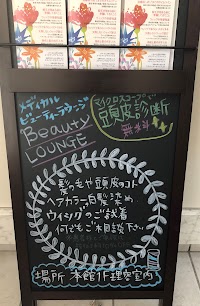 メディカル
ビューティーラウンジ
Beauty
LOUNGE
マイクロスコープで
頭皮診断
無料
髪の毛や頭皮のコト
ヘアカラー、白髪染め
ウィッグのご試着
何でもご相談下さい
場所 本館1F理容室内